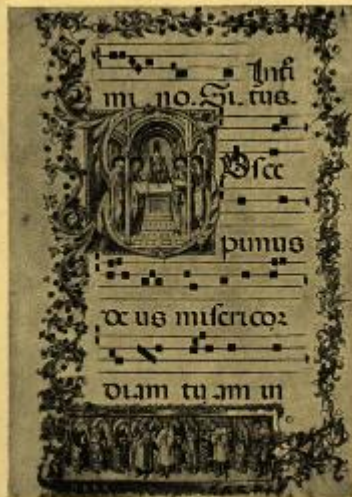 Intr
mi no. Oi tus.
SUsce
pimus
de us misericor
diam tu am in